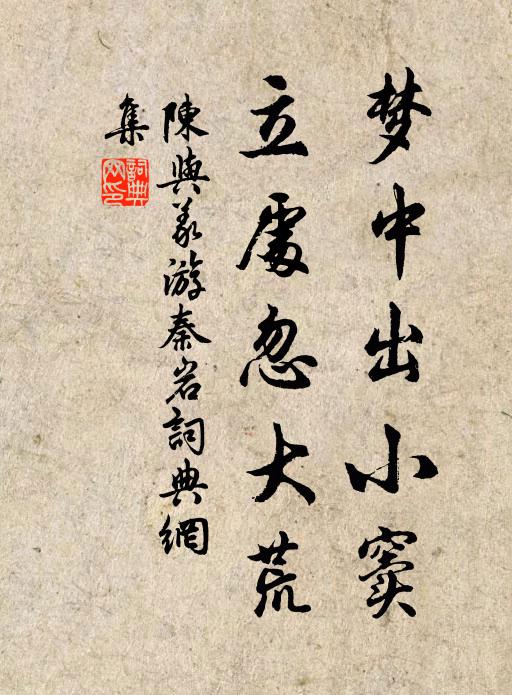 梦中出小窦
立處忽大荒
陳與义游秦岩詞典網
集
詞典網印